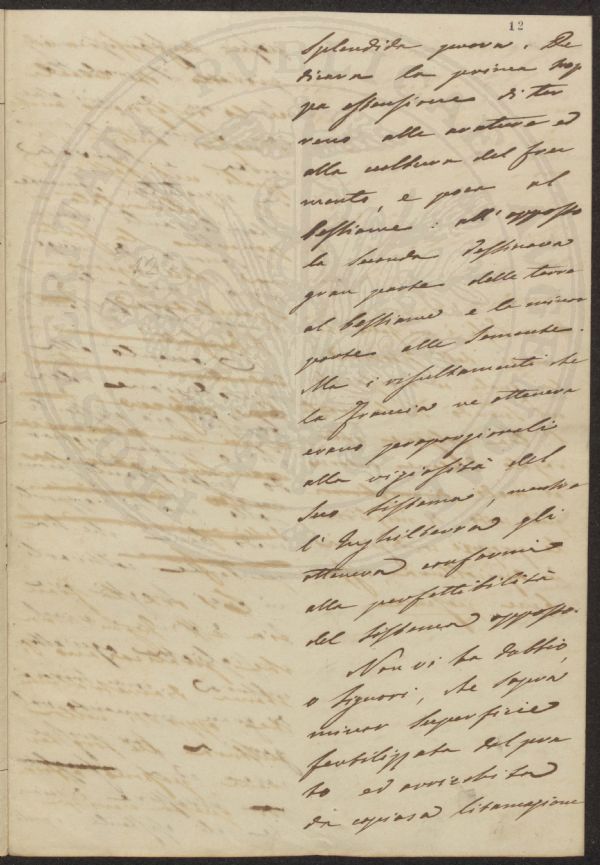 12
splendida prova. De
dicava la prima trop
pa estensione di ter
reno alle arature ed
alla coltura del fru
mento, e poca al
bestiame: all'opposto
la seconda destinava
gran parte delle terre
al bestiame e la minor
parte alle semente.
Ma i risultamenti che
la Francia ne otteneva
erano proporzionali
alla viziosità del
suo sistema, mentre
l'Inghilterra gli
otteneva conformi
alla perfettibilità
del sistema opposto.
Non vi ha dubbio,
o Signori, che sopra
minor superficie
fertilizzata dal pra
to ed arricchita
da copiosa litamazione